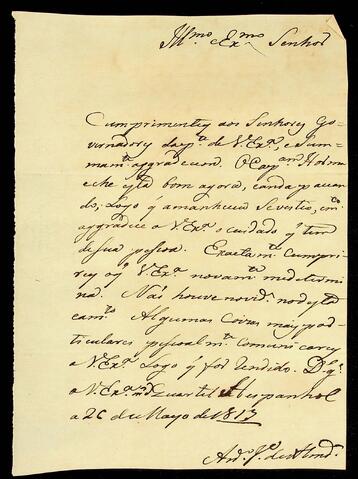 Ill.mo e Ex.mo Senhor
Cumprimentey aos Senhores Go-
vernadores da p.te de V. Ex.ª, e Sum-
mam.te aggradecem. O Cap.am
esta bom agora, e anda passean-
do, Logo q amanheceu Sevestio,
aggradece a V. Ex.ª o cuidado q tem
de sua pessoa. Exactam.te cumpri-
rey o q V. Ex.ª novam.te me determi-
na. Não houve novid.e nodesta
cam.º Algumas Coizas mays par-
ticulares pesoalm.te comunicarey
a V. Ex.ª Logo q for Rendido. D.s g.e
a V. Ex.ª m.s Quartel Hespanhol
a 26 de Mayo de 1813